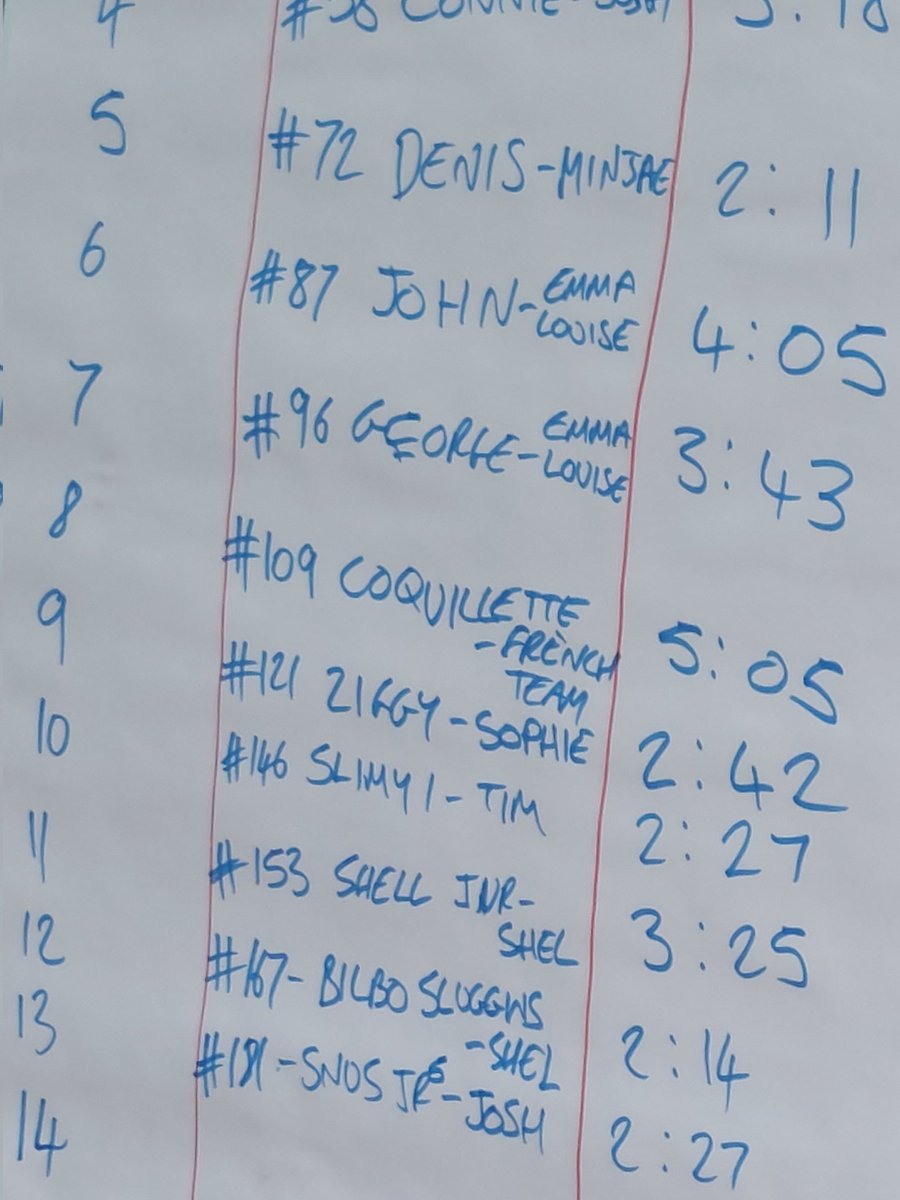 4 CONNIE-
5 #72 DENIS-MINJAE 2:11
6 #87 JOHN-EMMA
LOUISE 4:05
7 #96 GEORGE-EMMA
LOUISE 3:43
8 #109 COQUILLETTE
-FRENCH
TEAM 5:05
9 #121 ZIGGY-SOPHIE 2:42
10 #146 SLIMY1-TIM 2:27
11 #153 SHELL JNR-
SHEL 3:25
12 #167-BILBO SLUGGINS
-SHEL 2:14
13 #181-SNOS JR-JOSH 2:27
14